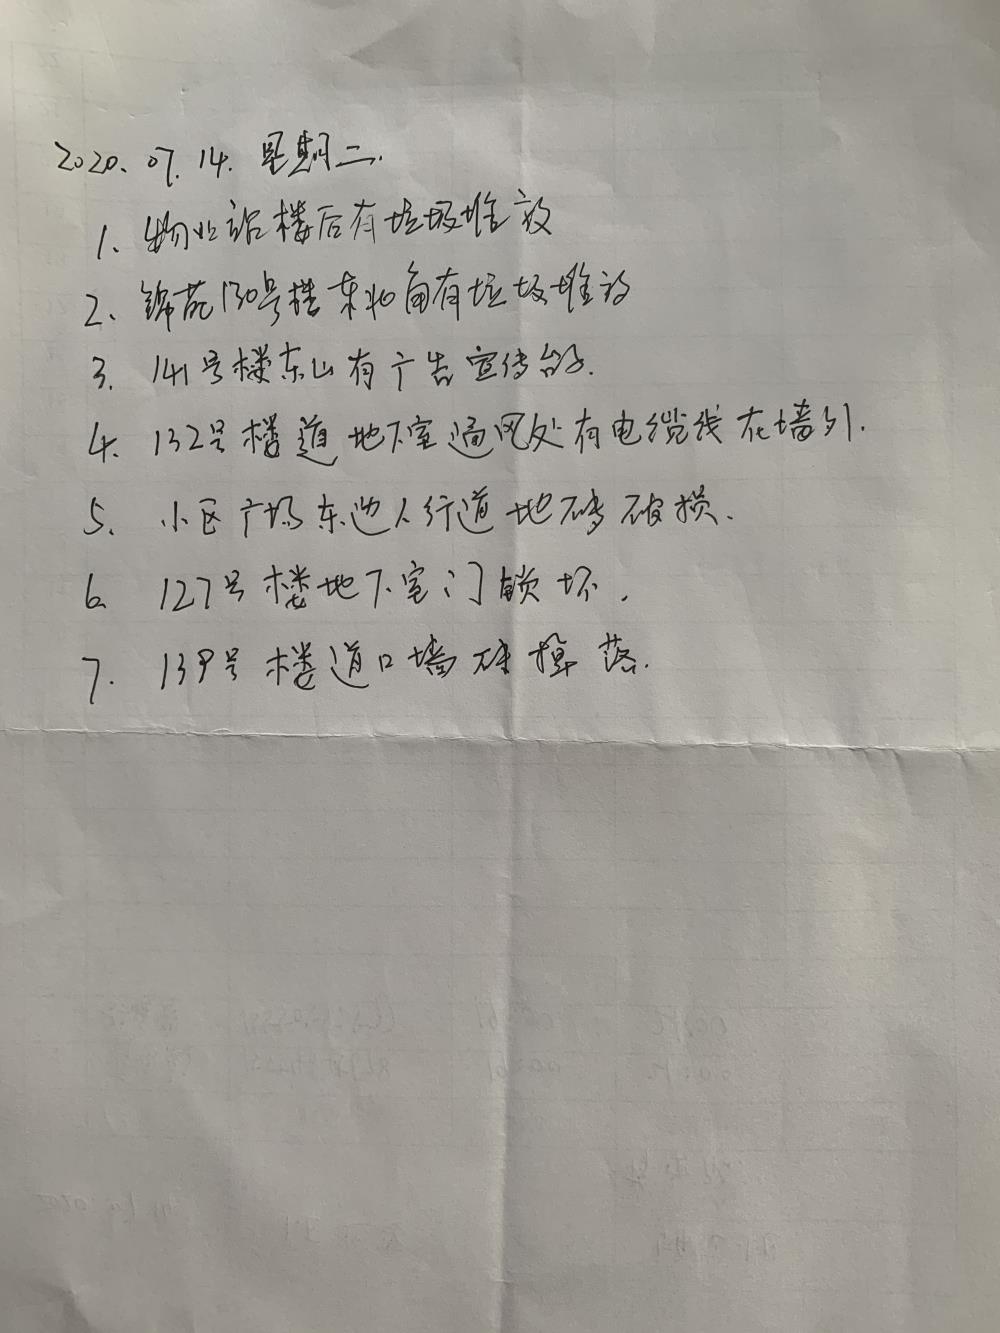 2020.07.14.星期二.
1、物业站楼后有垃圾堆放
2、锦苑130号楼东北角有垃圾堆放
3.141号楼东山有广告宣传
4.132号楼道地下室通风处有电缆线在墙外.
5.小区广场东边人行道地砖破损.
6.127号楼地下室门锁坏.
7.139号楼道口墙砖掉落.